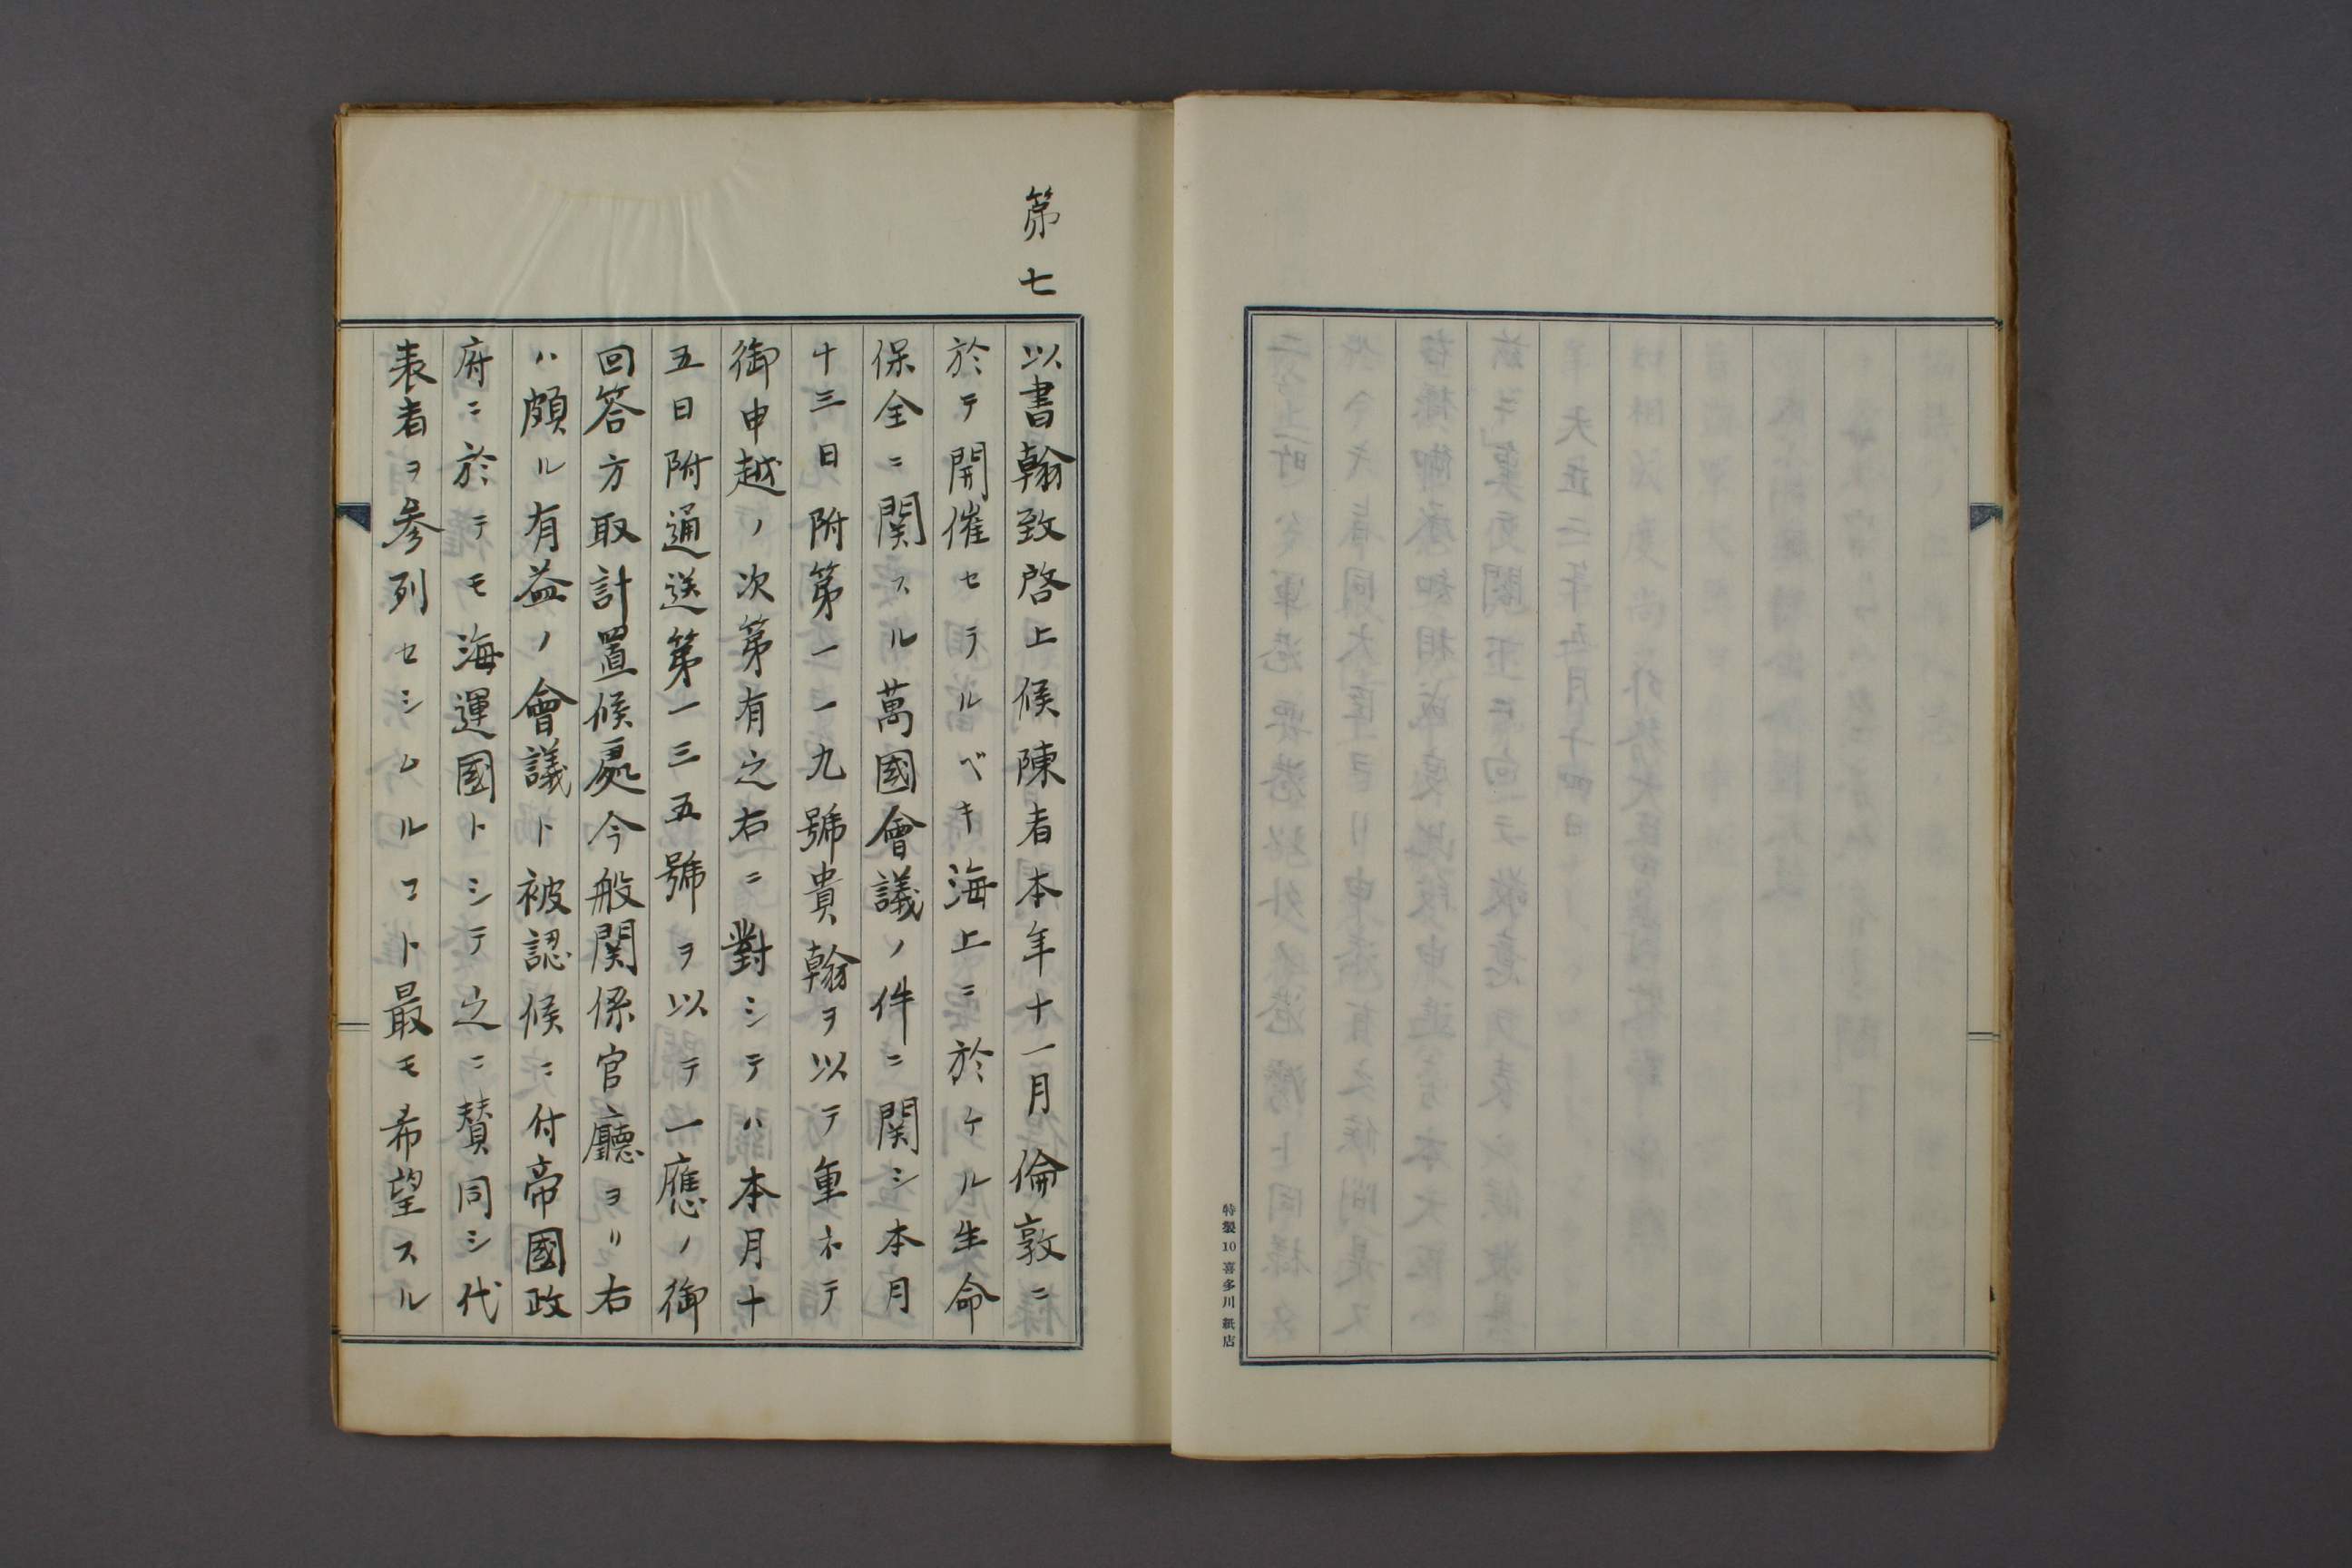 特製10喜多川紙店
第七
以書翰致啓上候陳者本年十一月倫敦ニ
於テ開催セラルベキ海上ニ於ケル生命
保全ニ関スル萬國會議ノ件ニ関シ本月
十三日附第一一九號貴翰ヲ以テ重ネテ
御申越ノ次第有之右ニ對シテハ本月十
五日附通送第一三五號ヲ以テ一應ノ御
回答方取計置候處今般関係官廳ヨリ右
ハ頗ル有益ノ會議ト被認候ニ付帝國政
府ニ於テモ海運國トシテ之ニ賛同シ代
表者ヲ参列セシムルコト最モ希望スル